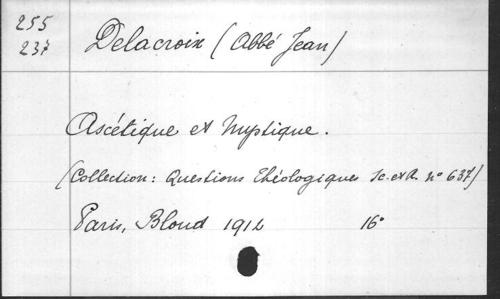 255
237
Delacroix (Abbé Jean)
Ascétique et Mystique.
(Collection: Questions Théologiques Sc. et R. n° 637)
Paris, Bloud 1912 16°